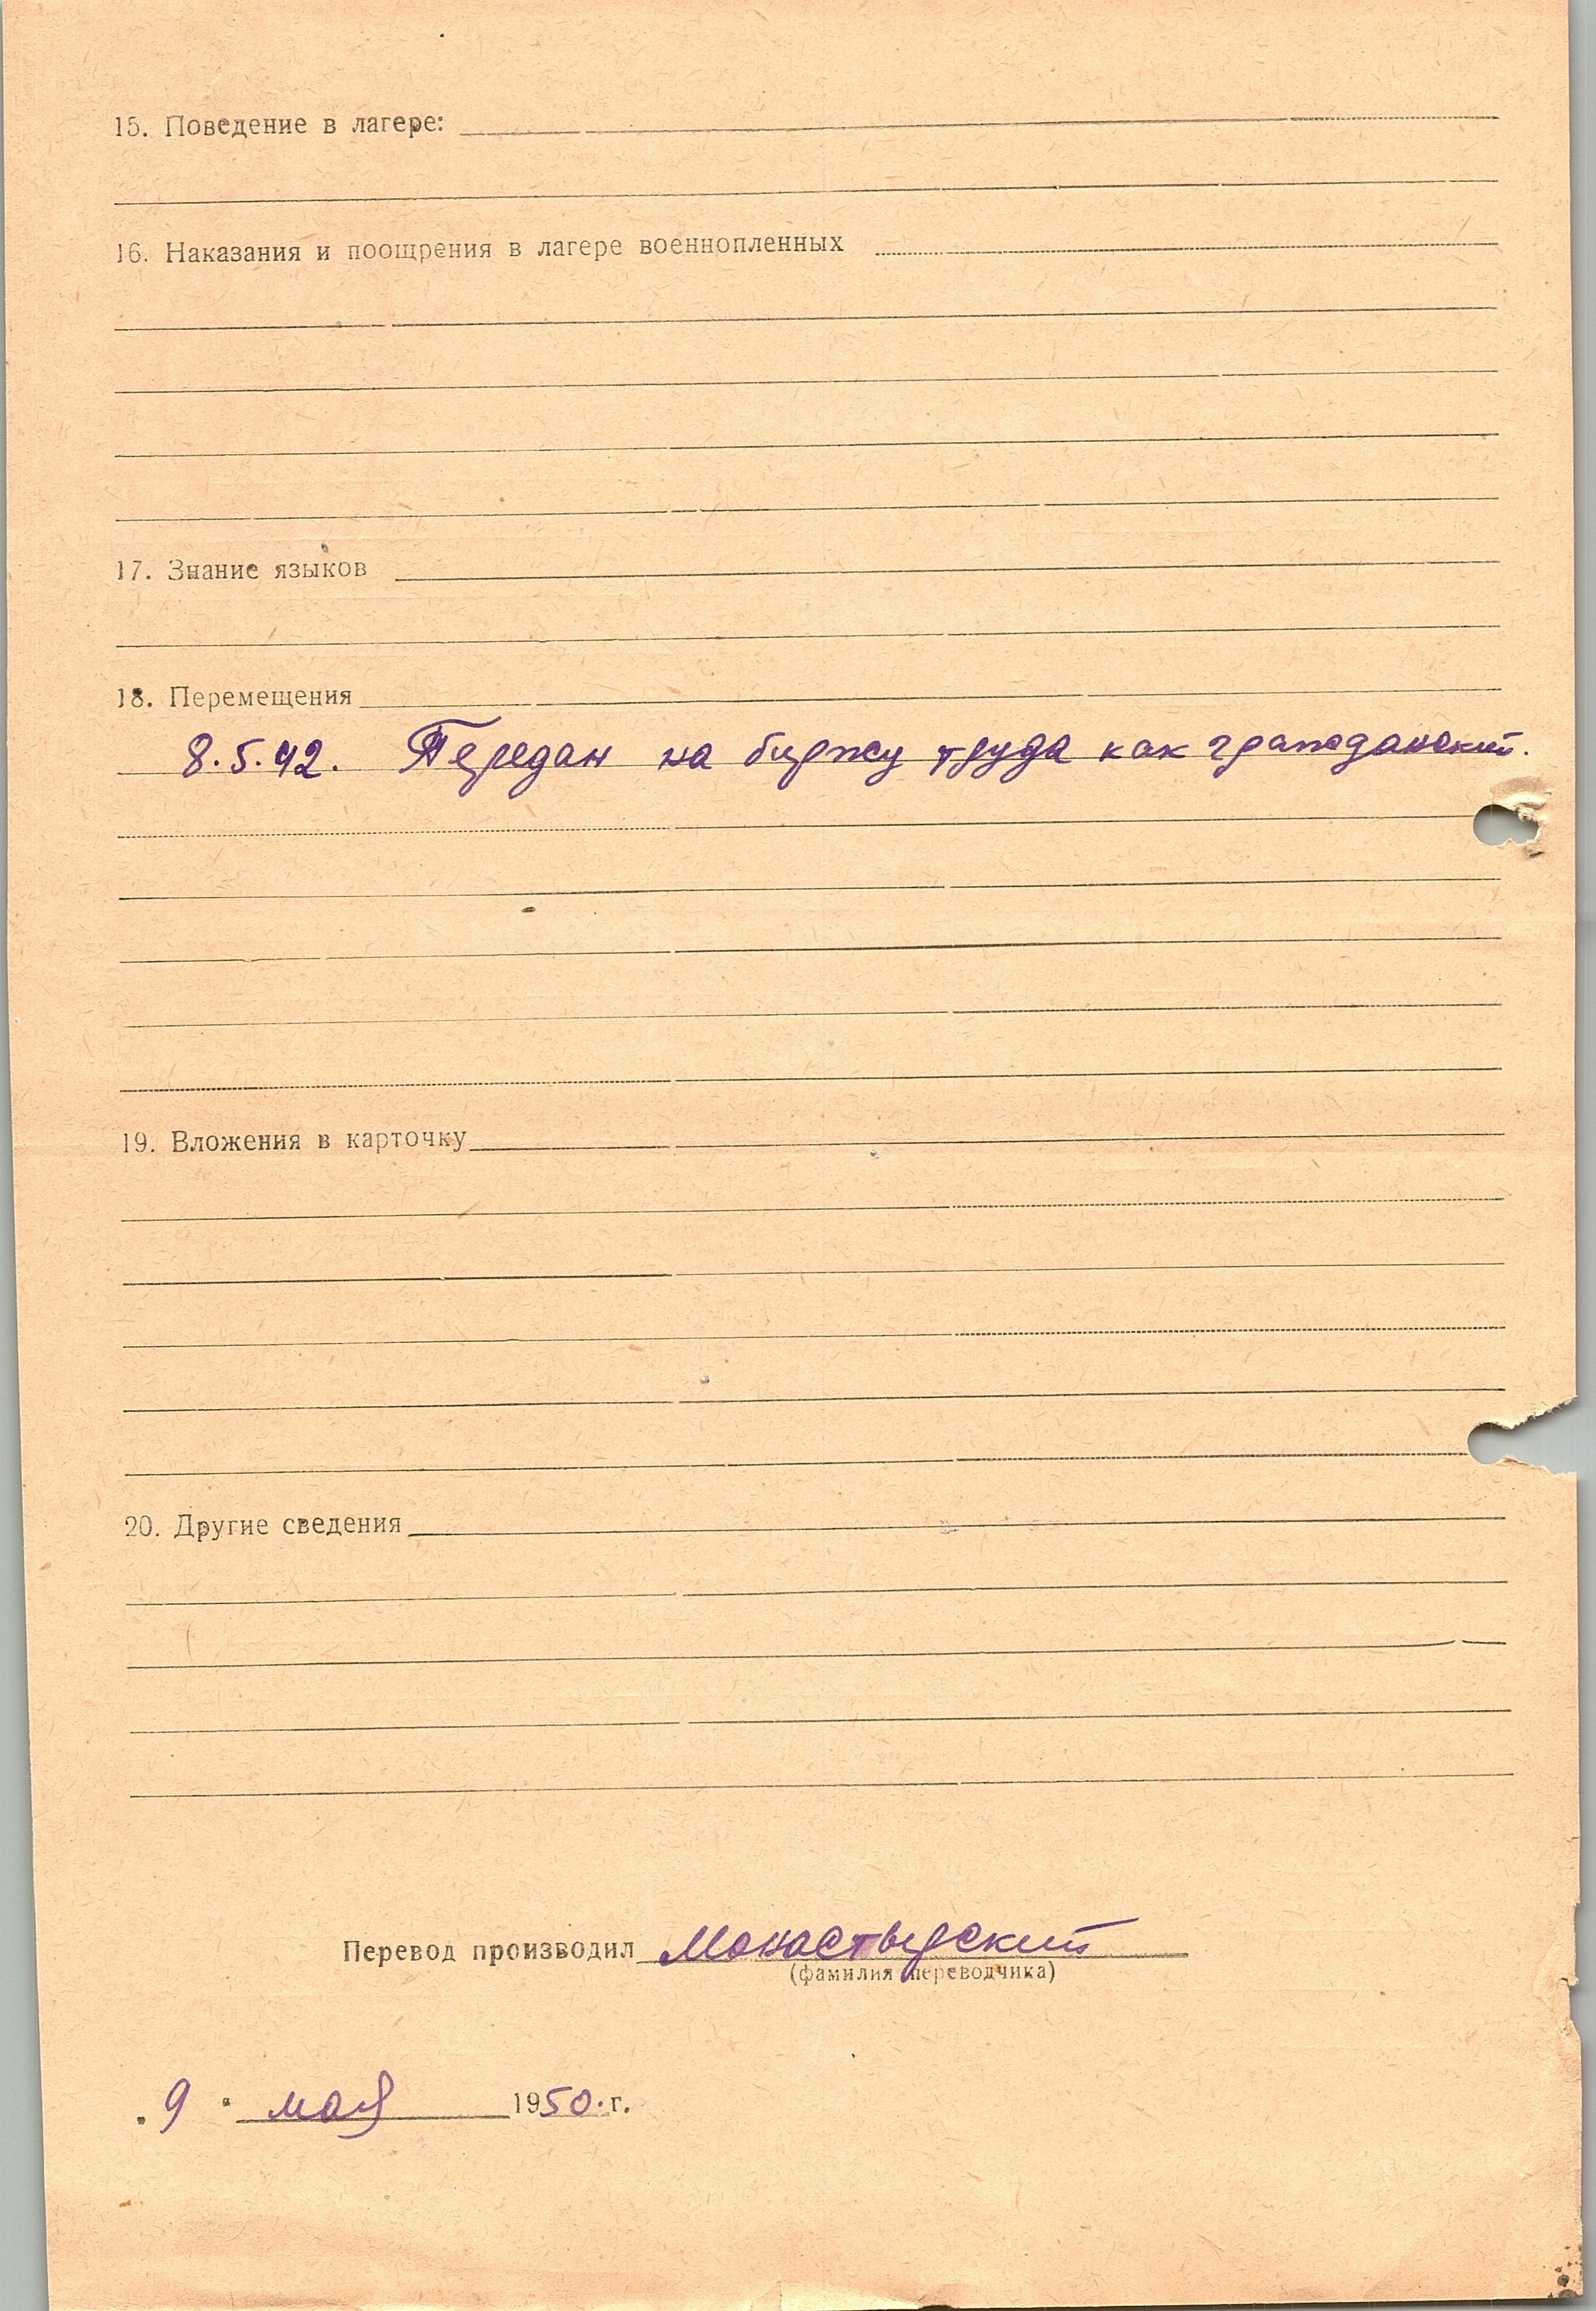 15. Поведение в лагере:
16. Наказания и поощрения в лагере военнопленных
17. Знание языков
18. Перемещения
8.5.42. Передан на биржу труда как гражданский.
19. Вложения в карточку
20. Другие сведения
Перевод производил Монастырский
(фамилия переводчика)
„ 9 " мая 1950.г.